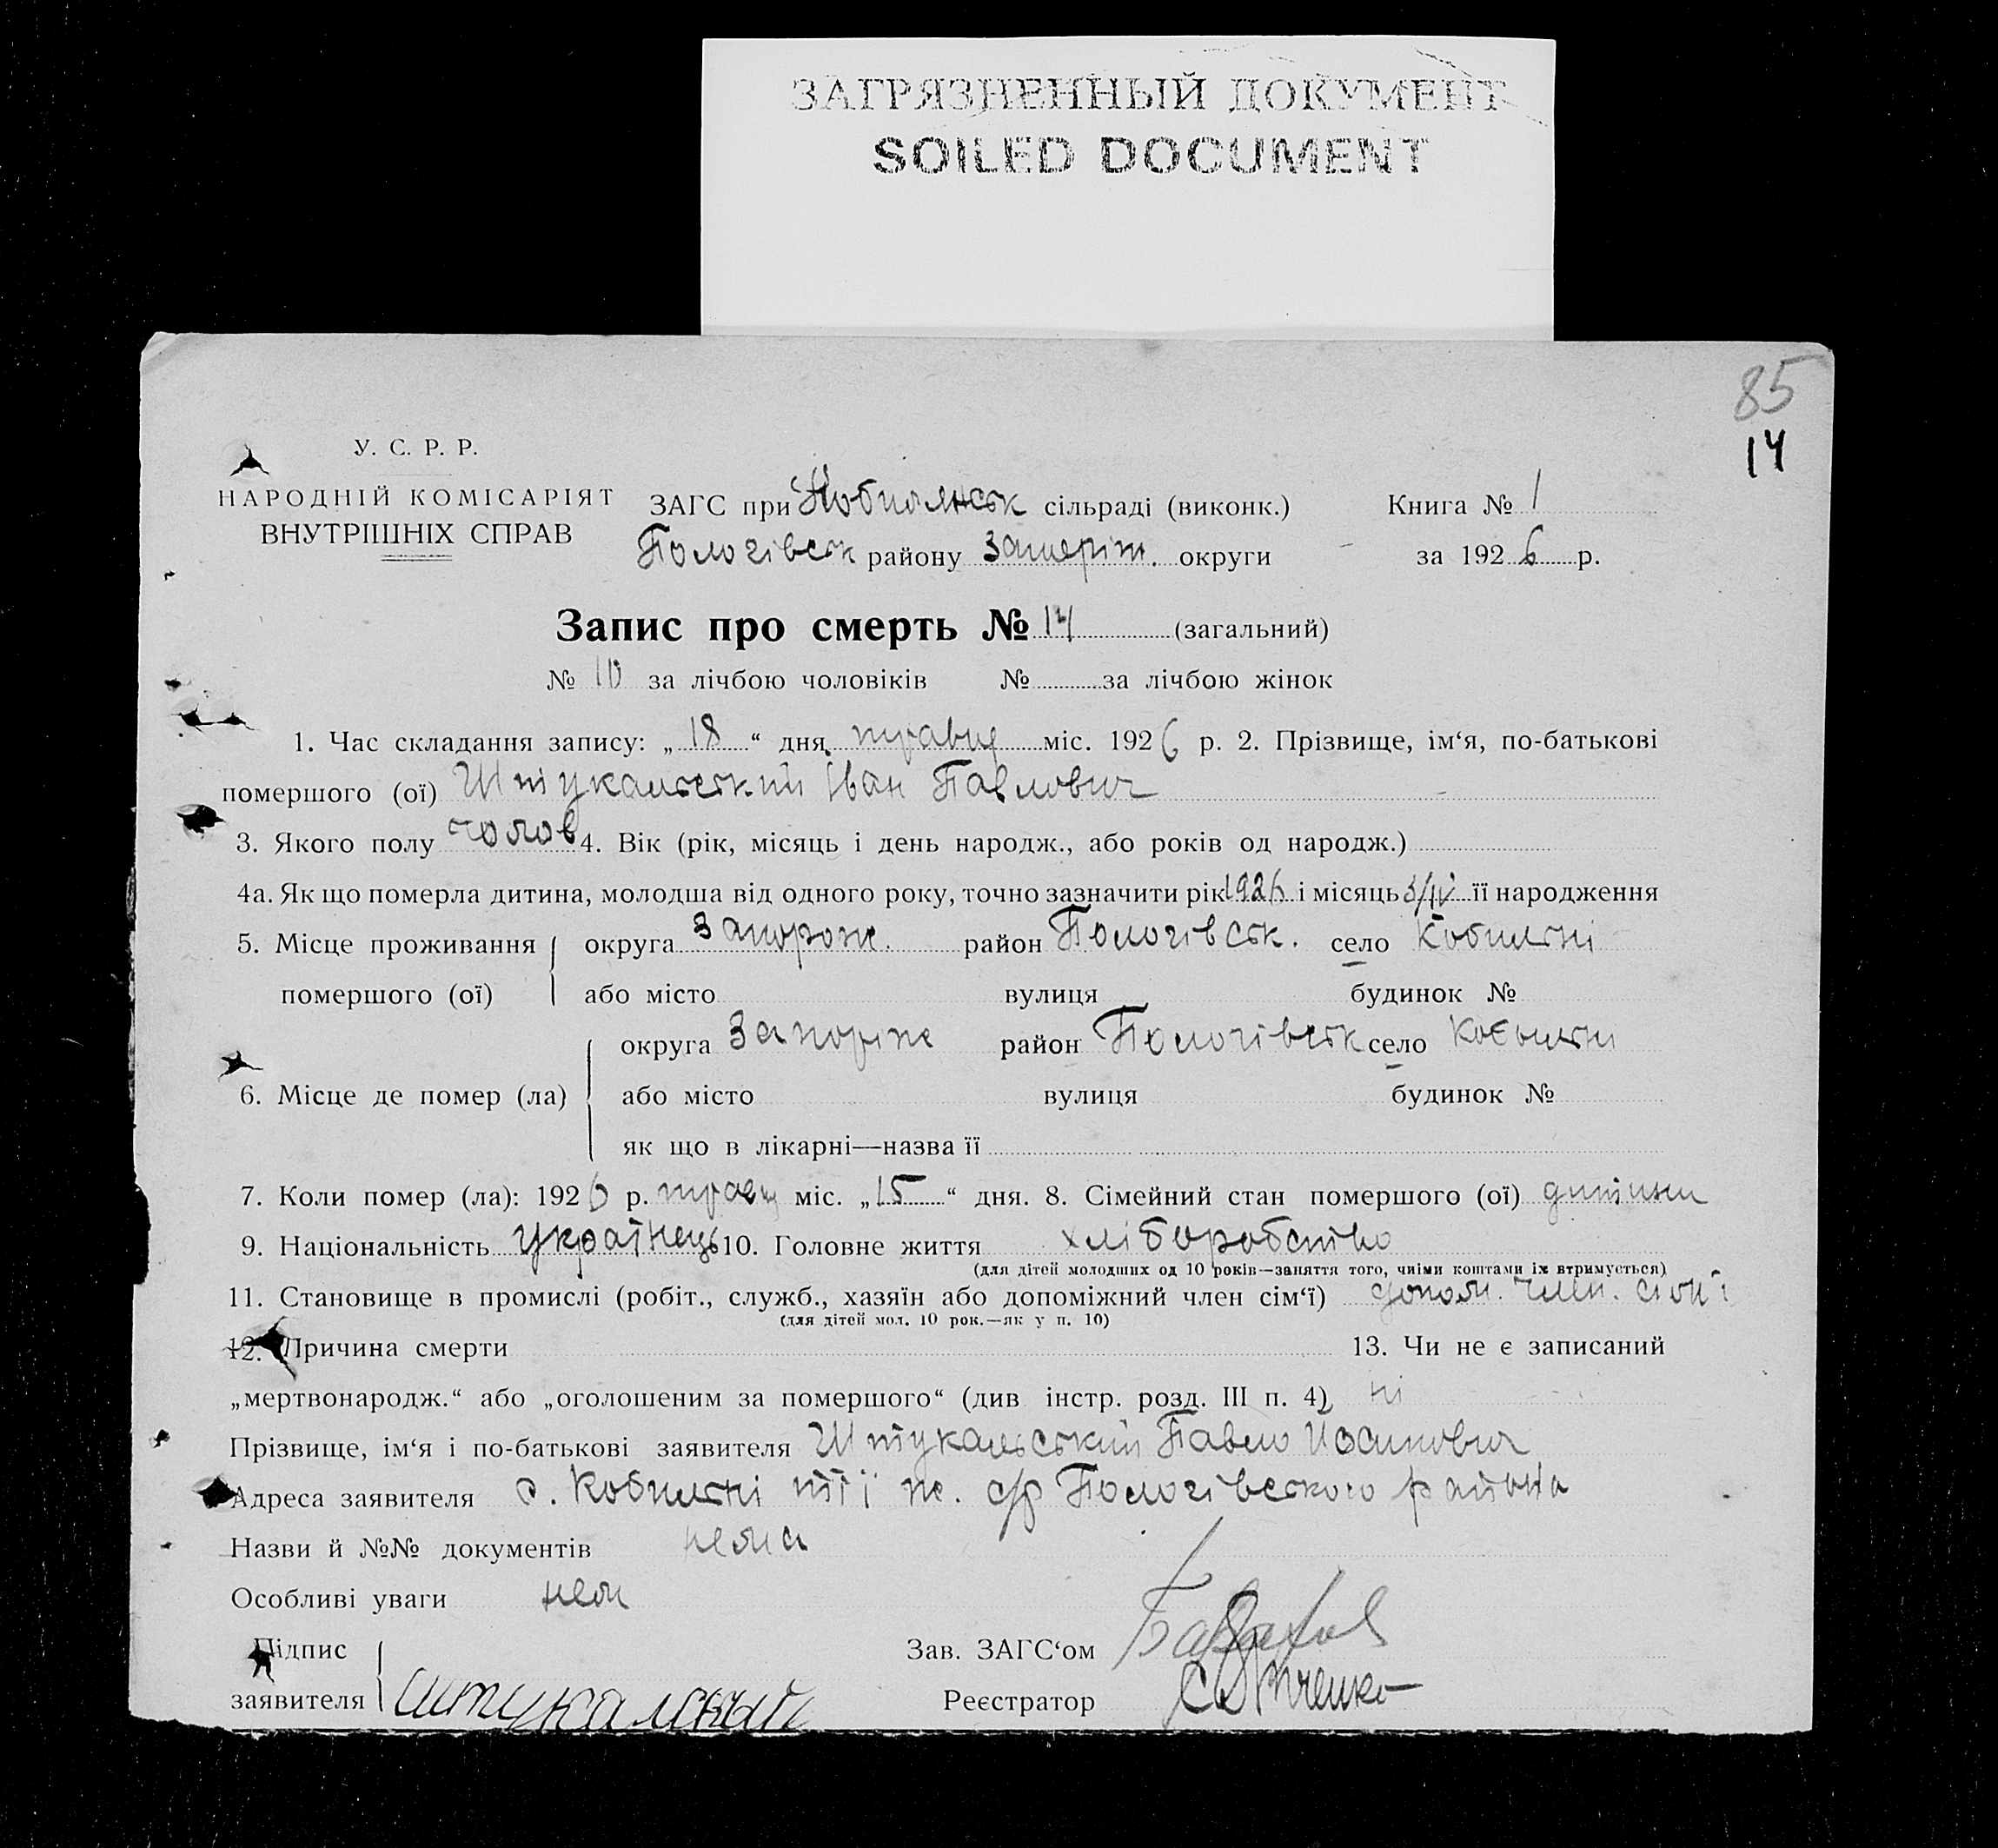 ЗАГРЯЗНЕННЫЙ ДОКУМЕНТ
SOILED DOCUMENT
85
14
У. С. Р. Р.
НАРОДНІЙ КОМІСАРІЯТ
ВНУТРІШНІХ СПРАВ
ЗАГС при сільраді (виконк.) Книга № 1
Пологівськ району Запоріж. округи за 1926 р.
Запис про смерть № 14 (загальний)
№ 10 за лічбою чоловіків № за лічбою жінок
1. Час складання запису: „18“ дня травня міс. 1926 р. 2. Прізвище, ім‘я, по-батькові
помершого (ої) Штукальський Іван Павлович
3. Якого полу чолов 4. Вік (рік, місяць і день народж., або років од народж.)
4а. Як що померла дитина, молодша від одного року, точно зазначити рік 1926 і місяць 3/IV її народження
5. Місце проживання округа Запорож. район Пологівськ. село Кобильні
помершого (ої) або місто вулиця будинок №
округа Запоріж район Пологівськ село Кобильні
6. Місце де помер (ла) або місто вулиця будинок №
як що в лікарні—назва її
7. Коли помер (ла): 1926 р. травн міс. „15“ дня. 8. Сімейний стан помершого (ої) дитина
9. Національність Українець 10. Головне життя хліборобство
(для дітей молодших од 10 років—заняття того, чиїми коштами їх втримується)
11. Становище в промислі (робіт., служб., хазяїн або допоміжний член сім‘ї) допом. член. сім'ї
(для дітей мол. 10 рок.—як у п. 10)
12. Причина смерти 13. Чи не є записаний
„мертвонародж.“ або „оголошеним за помершого“ (див інстр. розд. III п. 4) ні
Прізвище, ім‘я і по-батькові заявителя Штукальський Павло Йосипович
Адреса заявителя с. Кобильні тії ж. с/р Пологівського района
Назви й №№ документів нема
Особливі уваги нем
Підпис Зав. ЗАГС‘ом
заявителя Реєстратор